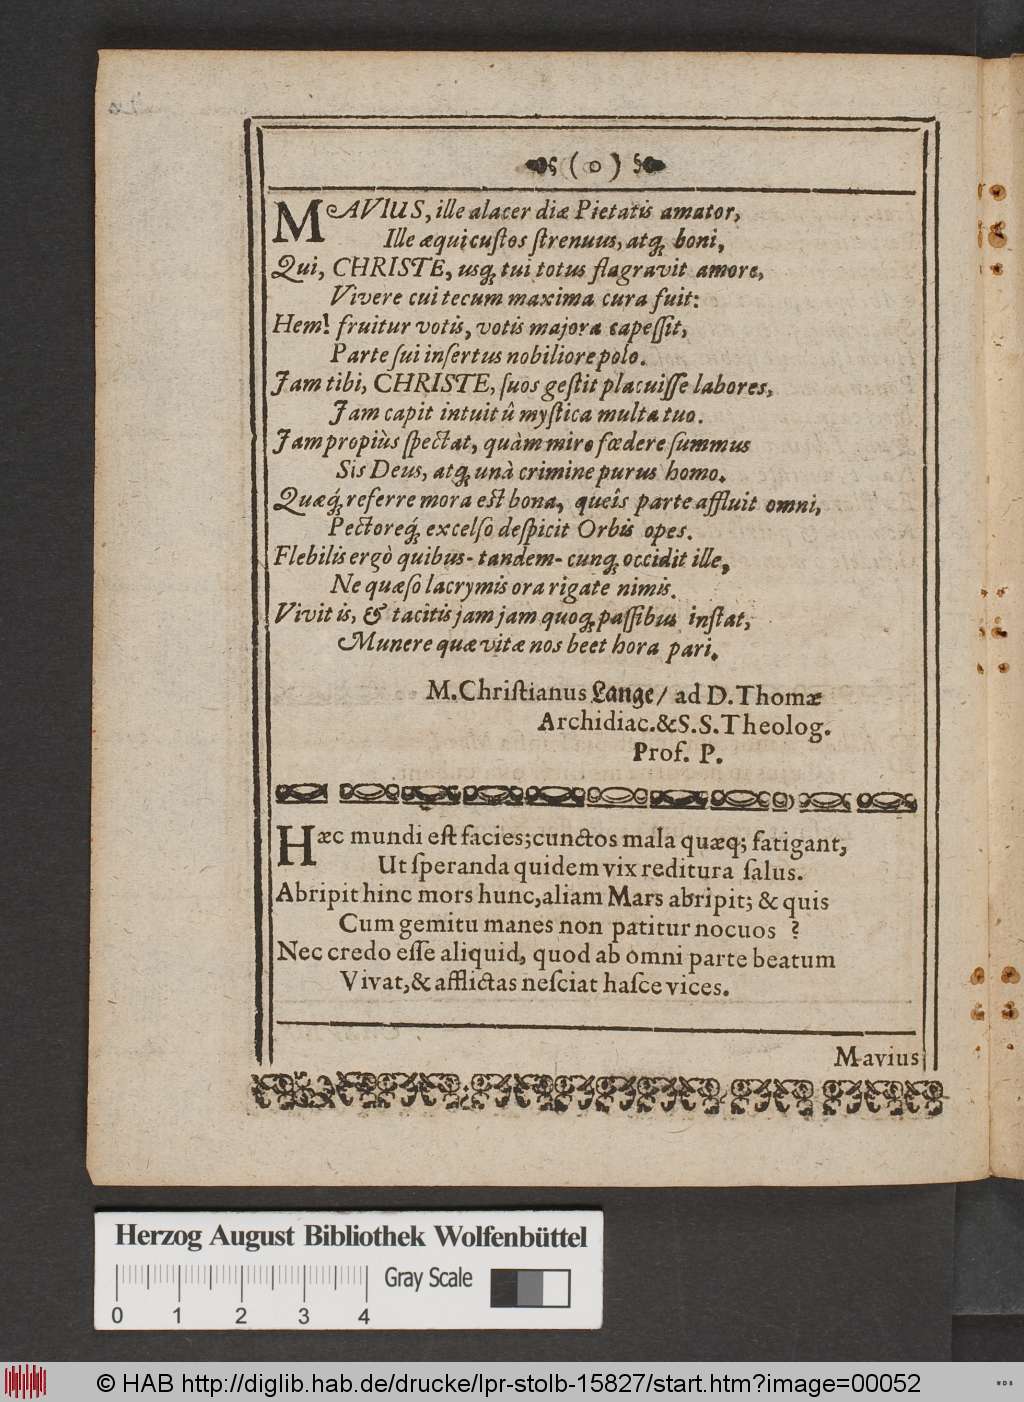 ( o )
MAVIUS, ille alacer diæ Pietatis amator,
Ille æqui custos strenuus, atq; boni,
Qui, CHRISTE, usq; tui totus flagravit amore,
Vivere cui tecum maxima cura fuit:
Hem! fruitur votis, votis majora capeſſit,
Parte ſui inſertus nobiliore polo.
Jam tibi, CHRISTE, ſuos geſtit placuiſſe labores,
Jam capit intuitû myſtica multa tuo.
Jam propiùs ſpectat, quàm miro fœdere ſummus
Sis Deus, atq; unà crimine purus homo.
Quæq́; referre mora est bona, queîs parte affluit omni,
Pectoreq́; excelſo deſpicit Orbis opes.
Flebilis ergò quibus-tandem-cunq; occidit ille,
Ne quæſo lacrymis ora rigate nimis.
Vivit is, & tacitis jam jam quoq; paſſibus inſtat,
Munere quæ vitæ nos beet hora pari.
M. Chriſtianus Lange/ ad D. Thomæ
Archidiac. & S.S. Theolog.
Prof. P.
Hæc mundi eſt facies; cunctos mala quæq; fatigant,
Ut ſperanda quidem vix reditura ſalus.
Abripit hinc mors hunc, aliam Mars abripit; & quis
Cum gemitu manes non patitur nocuos ?
Nec credo eſſe aliquid, quod ab omni parte beatum
Vivat, & afflictas neſciat haſce vices.
Mavius
Herzog August Bibliothek Wolfenbüttel
Gray Scale
0 1 2 3 4
© HAB http://diglib.hab.de/drucke/lpr-stolb-15827/start.htm?image=00052